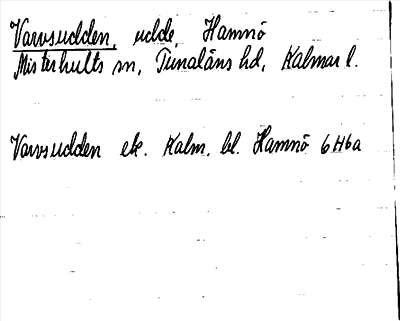 Varvsudden, udde, Hamnö
Misterhults sn, Tunaläns hd, Kalmar l.
Varvsudden ek. Kalm. bl. Hamnö 6H6a